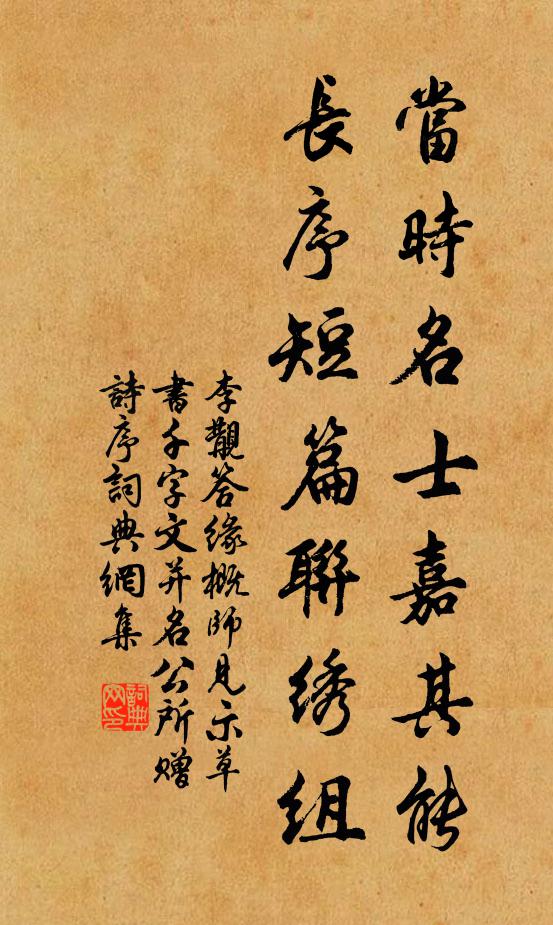 當時名士嘉其能
長序短篇聯绣組
李覯答緣概師見示草
書千字文并名公所贈
詩序詞典網集
詞典网印